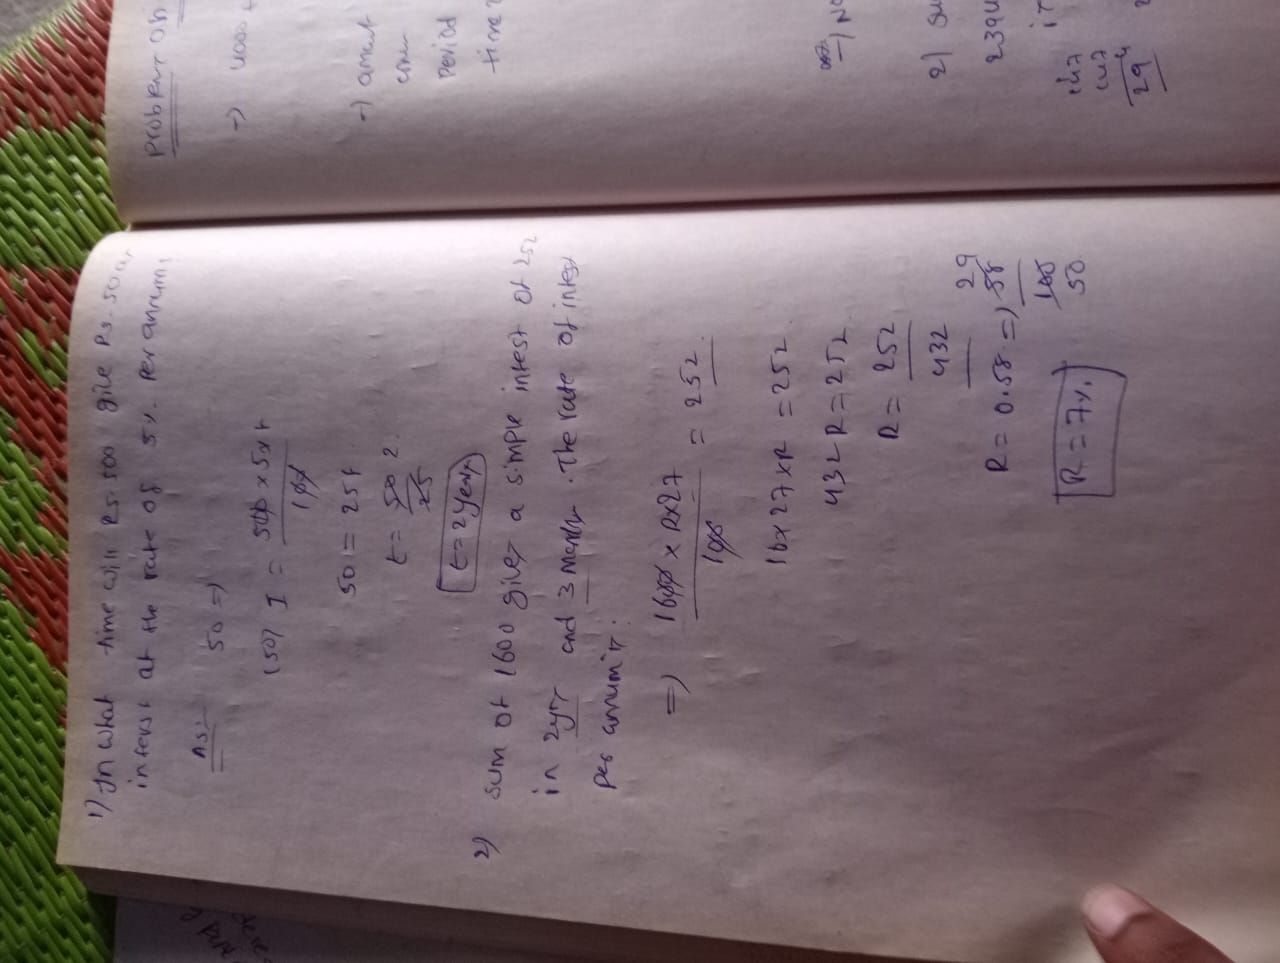 1) In what time will Rs. 500 give Rs. 50 as
interst at the rate of 5%. Per annum?
As:- 50 =)
(50) I = 500 x 5 x t
100
50 = 25 t
t = 50 2
25
t = 2 years
2) sum of 1600 gives a simple intrest of 252
in 2yr and 3 month. The rate of intest
per annum ir:
=) 1600 x R x 27 = 252
100
16 x 27 x R = 252
432 R = 252
R = 252
432
R = 0.58 =) 58 29
100
50
R = 7%
Problem on
=) 4000
=) amout
Period
time
=) No
2) su
2394
29